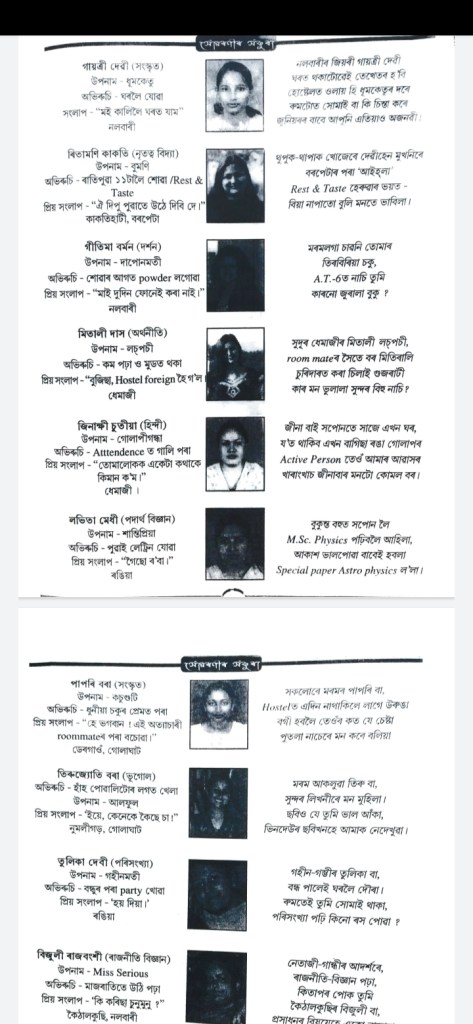 সোঁৱৰণীৰ সঁফুৰা
গায়ত্ৰী দেৱী (সংস্কৃত)
উপনাম - ধূমকেতু
অভিৰুচি - ঘৰলৈ যোৱা
সংলাপ - “মই কালিলৈ ঘৰত যাম”
নলবাৰী
নলবাৰীৰ জিয়ৰী গায়ত্ৰী দেৱী
ঘৰত থকাটোৱেই তেখেতৰ হ'বি
হোষ্টেলত ওলায় হি ধূমকেতুৰ দৰে
ৰুমটোত সোমাই বা কি চিন্তা কৰে
জুনিয়ৰৰ বাবে আপুনি এতিয়াও অজনৱী।
ৰিতামণি কাকতি (নৃতত্ব বিদ্যা)
উপনাম - ৰুমণি
অভিৰুচি - ৰাতিপুৱা ১১টালৈ শোৱা /Rest &
Taste
প্ৰিয় সংলাপ - “ঐ দিপু পুৱাতে উঠে দিবি দে।”
কাকতিহাটী, বৰপেটা
থুপুক-থাপাক খোজেৰে দেৱীহেন মুখনিৰে
বৰপেটাৰ পৰা 'আইহ্লা'
Rest & Taste হেৰুৱাৰ ভয়ত -
বিয়া নাপাতো বুলি মনতে ভাবিলা।
গীতিমা বৰ্মন (দৰ্শন)
উপনাম - দাপোনমতী
অভিৰুচি - শোৱাৰ আগত powder লগোৱা
প্ৰিয় সংলাপ - “মাই দুদিন ফোনেই কৰা নাই।”
নলবাৰী
মৰমলগা চাৱনি তোমাৰ
তিৰবিৰিয়া চকু,
A.T.-6ত নাচি তুমি
কাৰনো জুৰালা বুকু ?
মিতালী দাস (অৰ্থনীতি)
উপনাম - লচ্পচী
অভিৰুচি - কম পঢ়া ও মুডত থকা
প্ৰিয় সংলাপ - “বুজিছা, Hostel foreign হৈ গ'ল।
ধেমাজী
সুদূৰ ধেমাজীৰ মিতালী লচ্পচী,
room mateৰ সৈতে বৰ মিতিৰালি
চুৰিদাৰত কৰা চিলাই গুজৰাটী
কাৰ মন ভুলালা সুন্দৰ বিহু নাচি ?
জিনাক্ষী চুতীয়া (হিন্দী)
উপনাম - গোলাপীগন্ধা
অভিৰুচি - Atttendence ত গালি পৰা
প্ৰিয় সংলাপ - “তোমালোকক একেটা কথাকে
কিমান ক'ম।”
ধেমাজী ।
জীনা বাই সপোনতে সাজে এখন ঘৰ,
য'ত থাকিব এখন বাগিছা ৰঙা গোলাপৰ
Active Person তেওঁ আমাৰ আৱাসৰ
খাৰাংখাচ জীনাবাৰ মনটো কোমল বৰ।
লভিতা মেধী (পদাৰ্থ বিজ্ঞান)
উপনাম - শান্তিপ্ৰিয়া
অভিৰুচি - পুৱাই লেট্ৰিন যোৱা
প্ৰিয় সংলাপ - “গৈছো ৰ'বা।”
ৰঙিয়া
বুকুত বহুত সপোন লৈ
M.Sc. Physics পঢ়িবলৈ আহিলা,
আকাশ ভালপোৱা বাবেই হবলা
Special paper Astro physics ল'লা।
সোঁৱৰণীৰ সঁফুৰা
পাপৰি বৰা (সংস্কৃত)
উপনাম - কচুগুটি
অভিৰুচি - ধুনীয়া চকুৰ প্ৰেমত পৰা
প্ৰিয় সংলাপ - “হে ভগবান ! এই অত্যাচাৰী
roommateৰ পৰা বচোৱা।”
ডেৰগাওঁ, গোলাঘাট
সকলোৰে মৰমৰ পাপৰি বা,
Hostelত এদিন নাথাকিলে লাগে উৰুঙা
বগী হবলৈ তেওঁৰ কত যে চেষ্টা
পুতলা নাচেৰে মন কৰে বলিয়া
তিৰুজ্যোতি বৰা (ভূগোল)
অভিৰুচি - হাঁহ পোৱালিটোৰ লগত খেলা
উপনাম - আলফুল
প্ৰিয় সংলাপ - 'ইয়ে, কেনেকৈ কৈছে চা।”
নুমলীগড়, গোলাঘাট
মৰম আকলুৱা তিৰু বা,
সুন্দৰ লিখনীৰে মন মুহিলা।
ছবিও যে তুমি ভাল আঁকা,
ভিনদেউৰ ছবিখনহে আমাক নেদেখুৱা।
তুলিকা দেৱী (পৰিসংখ্যা)
উপনাম - গহীনমতী
অভিৰুচি - বন্ধুৰ পৰা party খোৱা
প্ৰিয় সংলাপ - 'হয় দিয়া।'
ৰঙিয়া
গহীন-গম্ভীৰ তুলিকা বা,
বন্ধ পালেই ঘৰলৈ দৌৰা।
ৰুমতেই তুমি সোমাই থাকা,
পৰিসংখ্যা পঢ়ি কিনো ৰস পোৱা ?
বিজুলী ৰাজবংশী (ৰাজনীতি বিজ্ঞান)
উপনাম - Miss Serious
অভিৰুচি - মাজৰাতিতে উঠি পঢ়া
প্ৰিয় সংলাপ - 'কি কৰিছা চুনুমুনু ?”
কৈঠালকুছি, নলবাৰী
নেতাজী-গান্ধীৰ আদৰ্শৰে,
ৰাজনীতি-বিজ্ঞান পঢ়া,
কিতাপৰ পোক তুমি
কৈঠালকুছিৰ বিজুলী বা,